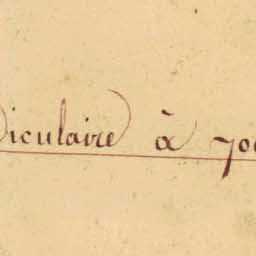 diculaire à 700